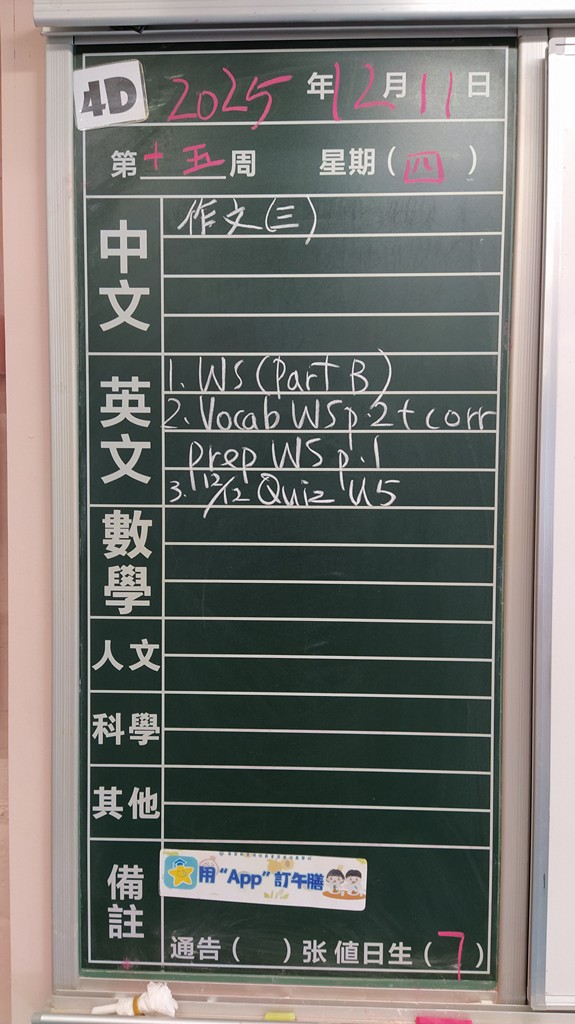 4D
2025年12月11日
第十五周 星期(四)
中文
作文(三)
英文
1. WS (Part B)
2. Vocab WS p.2 + corr
prep WS p.1
3. 12/12 Quiz U5
數學
人文
科學
其他
備註
用“App”訂午膳
通告( )张 值日生(7)